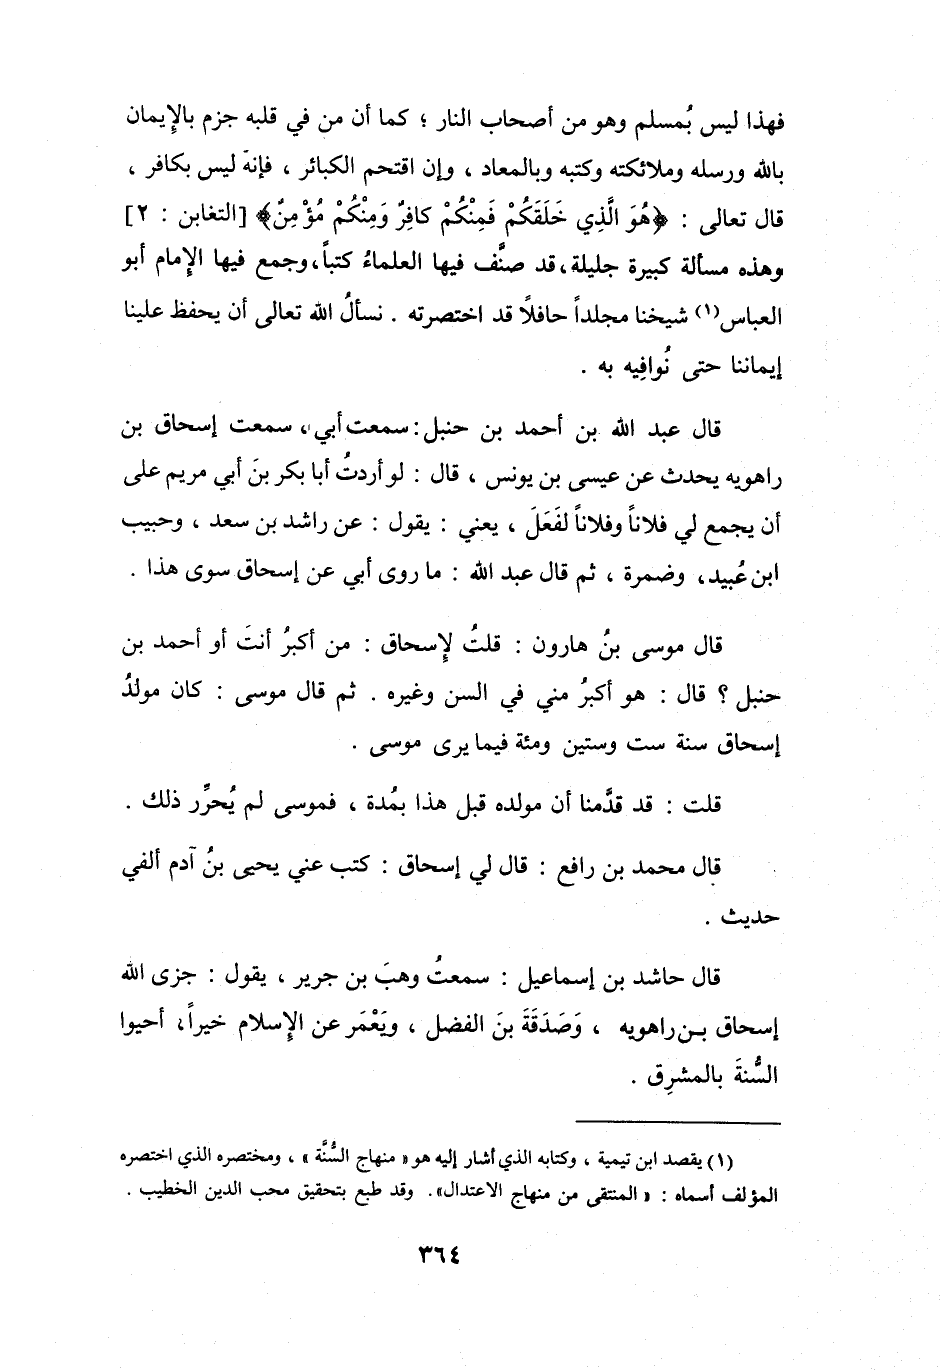 فهذا ليس بُمسلم وهو من أصحاب النار ؛ كما أن من في قلبه جزم بالإِيمان
بالله ورسله وملائكته وكتبه وبالمعاد ، وإن اقتحم الكبائر ، فإنهَ ليس بكافر ،
قال تعالى : ﴿هُوَ الَّذِي خَلَقَكُمْ فَمِنْكُمْ كافِرٌ وَمِنْكُمْ مُؤْمِنٌ﴾ [التغابن : ٢]
وهذه مسألة كبيرة جليلة،قد صنَّف فيها العلماءُ كتباً،وجمع فيها الإِمام أبو
العباس(١) شيخنا مجلداً حافلاً قد اختصرته . نسألُ الله تعالى أن يحفظ علينا
إيماننا حتى نُوافِيه به .
قال عبد الله بن أحمد بن حنبل: سمعت أبي، سمعت إسحاق بن
راهويه يحدث عن عيسى بن يونس ، قال : لو أردتُ أبا بكر بنَ أبي مريم على
أن يجمع لي فلاناً وفلاناً لفَعَلَ ، يعني : يقول : عن راشد بن سعد ، وحبيب
ابن عُبيد، وضمرة ، ثم قال عبد الله : ما روى أبي عن إسحاق سوى هذا .
قال موسى بنُ هارون : قلتُ لإِسحاق : من أكبرُ أنتَ أو أحمد بن
حنبل ؟ قال : هو أكبرُ مني في السن وغيره . ثم قال موسى : كان مولدُ
إسحاق سنة ست وستين ومئة فيما يرى موسى .
قلت : قد قدَّمنا أن مولده قبل هذا بمُدة ، فموسى لم يُحرِّر ذلك .
قال محمد بن رافع : قال لي إسحاق : كتب عني يحيى بنُ آدم ألفي
حديث .
قال حاشد بن إسماعيل : سمعتُ وهبَ بن جرير ، يقول : جزى الله
إسحاق بن راهويه ، وَصَدَقَةَ بنَ الفضل ، ويَعْمَر عن الإِسلام خيراً، أحيوا
السُّنةَ بالمشرِق .
(١) يقصد ابن تيمية ، وكتابه الذي أشار إليه هو « منهاج السُّنَّة » ، ومختصره الذي اختصره
المؤلف أسماه : « المنتقى من منهاج الاعتدال». وقد طبع بتحقيق محب الدين الخطيب .
٣٦٤